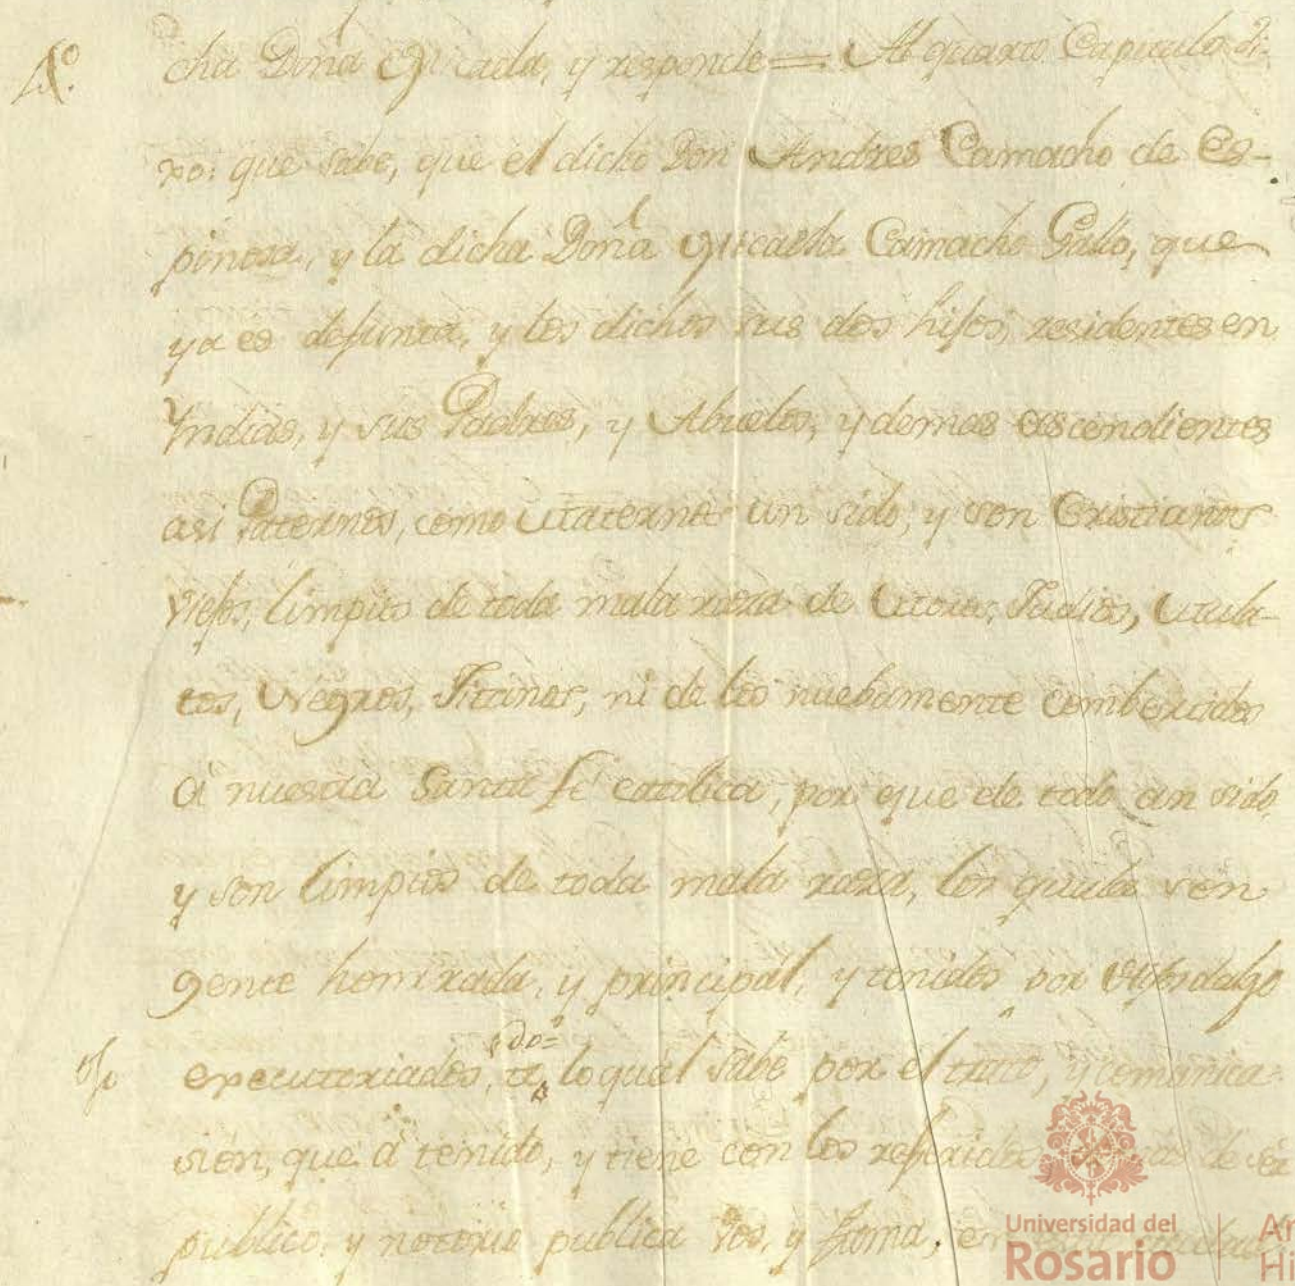 4º
cha Doña Micaela, y responde = Al quarto Capitulo di-
xo: que sabe, que el dicho Don Andres Camacho de Es-
pinosa, y la dicha Doña Micaela Camacho Gallo, que
ya es defunta, y los dichos sus dos hijos, residentes en
Yndias, y sus Padres, y Abuelos, y demas ascendientes
asi Paternos, como Maternos an sido, y son Cristianos
viejos, limpios de toda mala raza de Moros, Judios, Mula-
tos, Negros, Jitanos, ni de los nuebamente combertidos
á nuestra Santa fé catolica, por que de todo an sido,
y son limpios de toda mala raza, los quales son
gente honrrada, y principal, y tenidos por Hijosdalgo
executoriados, lo qual sabe por el trato, y comunica-
sion, que á tenido, y tiene con los referidos de ser
publico, y notorio publica vos, y fama,
Universidad del
Rosario